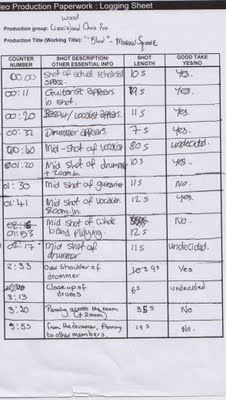 eo Production Paperwork : Logging Sheet
wood
Production group:
Production Title (Working Title): "Blood"
COUNTER NUMBER SHOT DESCRIPTION/ OTHER ESSENTIAL INFO SHOT LENGTH GOOD TAKE YES/NO
00:00 Shot of actual rehearsal space. 10s Yes.
00:11 Guitarist appears in shot. 9s Yes.
00:20 Bassist/vocalist appears. 11s Yes.
00:32 Drummer appears 7s Yes.
00:40 Mid-shot of vocalist 80s undecided.
01:20 Mid shot of drummer + zoom in. 10s Yes.
01:30 Mid shot of guitarist 11s No.
01:41 Mid shot of vocalist zoom in. 12s Yes.
01:53 Mid shot of whole band playing. 12s No.
02:17 Mid shot of drummer 11s undecided.
2:33 Over shoulder of drummer Yes
3:13 Close up of drums 6s undecided
3:20 Panning across the room (+ zoom) 35s No
3:55 From the drummer, Panning to other members. 19s No.